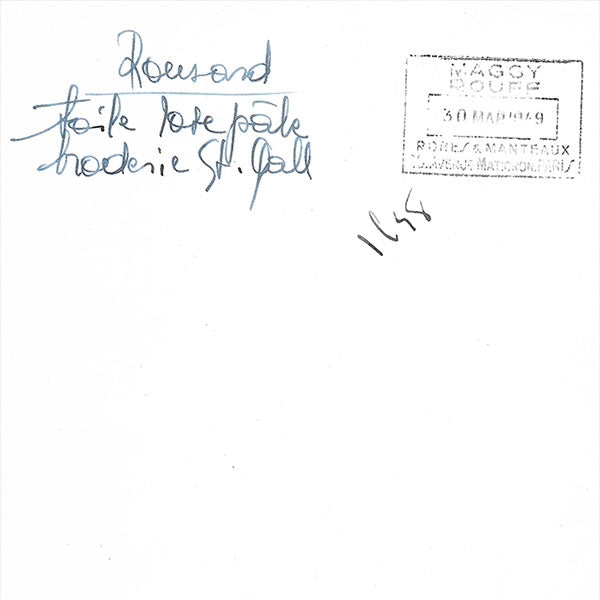 Ronsard
toile rose pâle
broderie St. Gall
MAGGY
ROUFF
30 MAR 1949
ROBES & MANTEAUX
AVENUE MATIGNON.PARIS